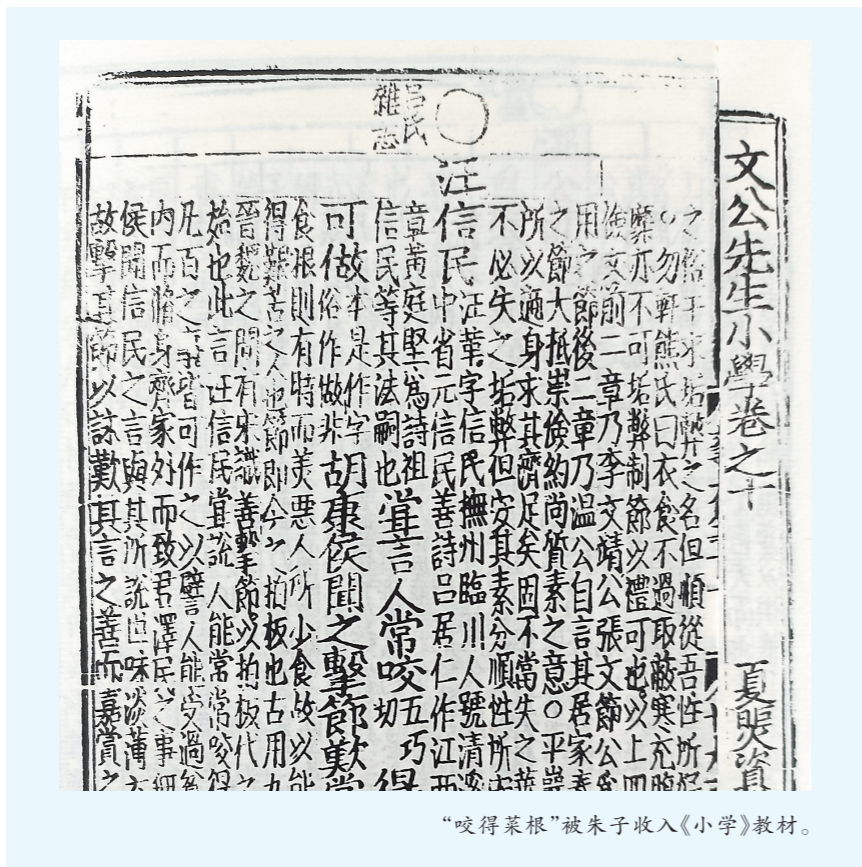 文公先生小學卷之十
夏煛資
之俗干求垢弊之名但順從吾性所好
○勿軒熊氏曰衣食不過取蔽寒充腹
弊亦不可垢弊制節以禮可也以上四
儉文前二章乃李文靖公張文節公
用之節後二章乃温公自言其居家
之節大抵崇儉約尚質素之意○平巖
所以適身求其濟足矣固不當失之華
不必失之垢弊但安其素分順性所
○
吕氏
雜志
汪信民
汪革字信民撫州臨川人號清溪
中省元信民善詩吕居仁作江西
章黄庭堅爲詩祖
信民等其法嗣也
甞言人常咬五巧切得
可做
本是作字
俗作做非
胡康侯聞之擊節歎賞
食根則有特而美惡人所少食故以能
得艱苦之人也節即今之拍板也古用九
晉魏之間有宋識善擊節以拍板代之
始也此言汪信民甞說人能常常咬得
凡百之事皆可作之以譬言人能受過貧
内而脩身齊家外而致君澤民之事
侯聞信民之言與其所說世味淡薄方
故擊其節以詠歎其言之善而嘉賞之
“咬得菜根”被朱子收入《小学》教材。